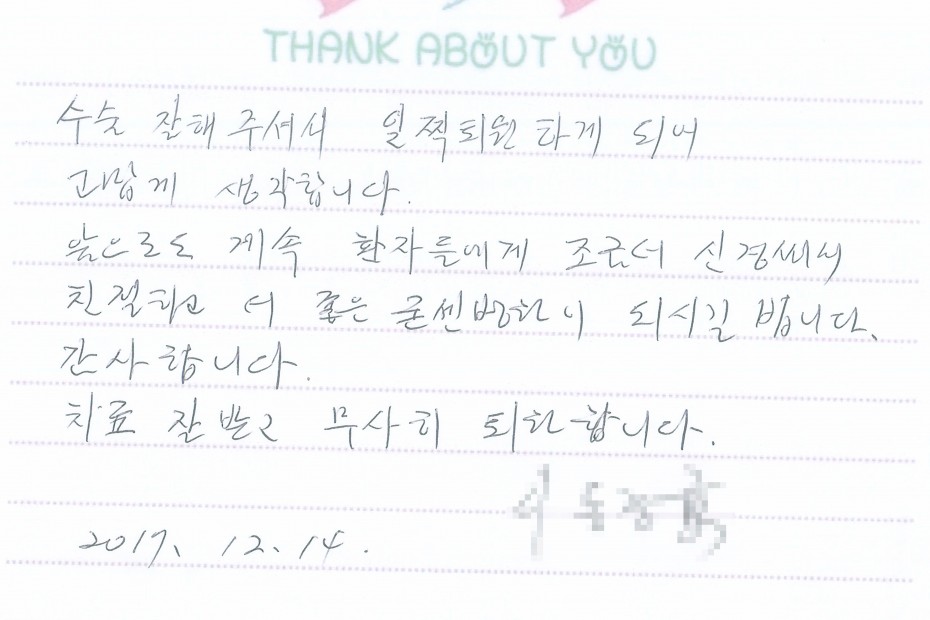 THANK ABOUT YOU
수술 잘해 주셔서 일찍퇴원 하게 되어
고맙게 생각합니다.
앞으로도 계속 환자들에게 조금더 신경써서
친절하고 더 좋은 굳센병원이 되시길 빕니다.
감사합니다.
치료 잘 받고 무사히 퇴원합니다.
2017. 12. 14.